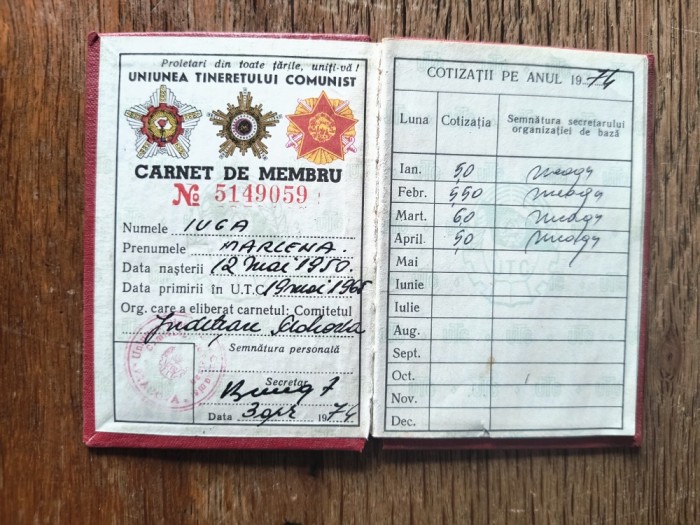 Proletari din toate țările, uniți-vă!
UNIUNEA TINERETULUI COMUNIST
CARNET DE MEMBRU
№ 5149059
Numele IUGA
Prenumele MARCENA.
Data nașterii 12 Mai 1950.
Data primirii în U.T.C. 19 mai 1965
Org. care a eliberat carnetul: Comitetul
Județean
Semnătura personală
Secretar
Data 3 apr 1974
COTIZAȚII PE ANUL 1974
Luna Cotizația Semnătura secretarului organizației de bază
Ian. 50
Febr. 550
Mart. 60
April. 50
Mai
Iunie
Iulie
Aug.
Sept.
Oct.
Nov.
Dec.